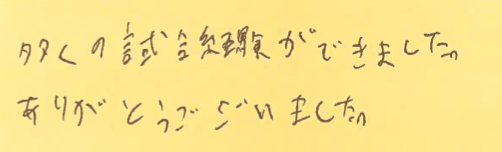 多くの試合経験ができました。
ありがとうございました。